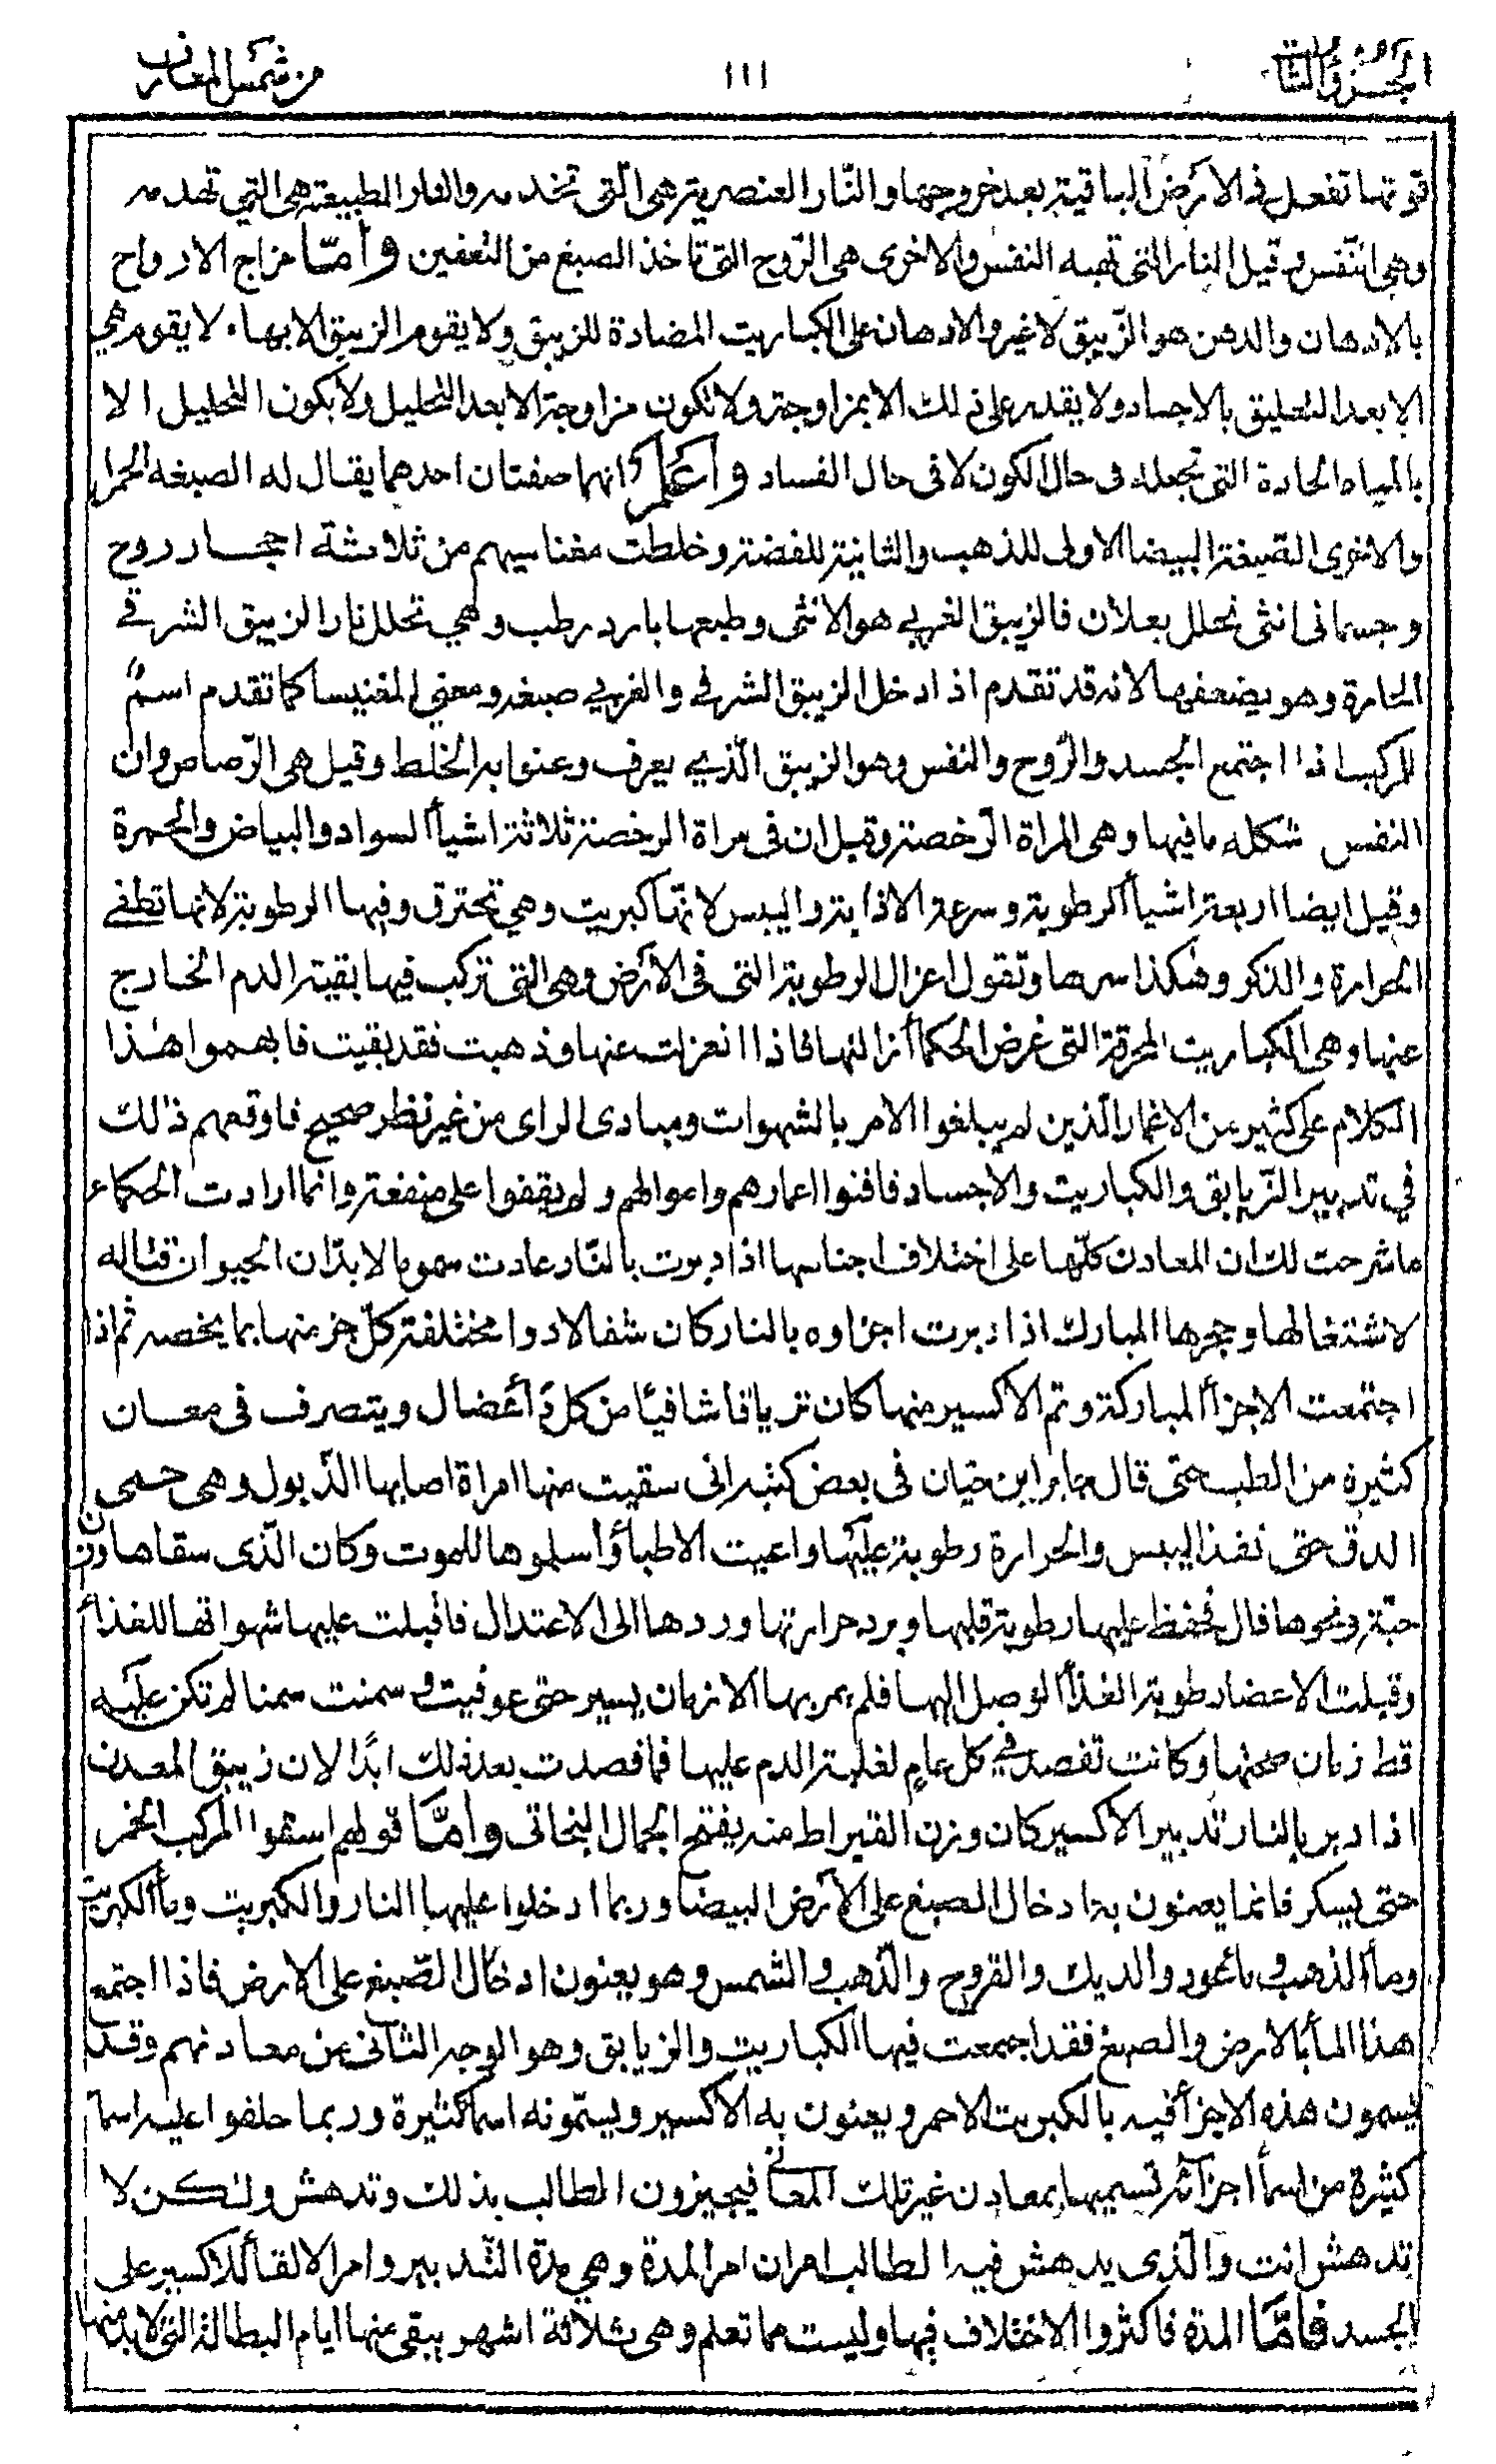 الجزؤ الثالث ١١١ من شمس المعارف
قوتها تفعل فى الأرض الباقية بعد خروجها والنّار العنصرية هى الّتى تخدمه والنار الطبيعة هى التي تهدمه
وهى النّفس وقيل النار التى تهبه النفس والاخرى هى الرّوح التى تاخذ الصبغ من التعفين وأمّا مزاج الارواح
بالادهان والدهن هو الزّيبق لا غير والادهان على الكباريت المضادة للزيبق ولا يقوم الزيبق الا بها ء لا يقوم هي
الا بعد التعليق بالاجساد ولا يقدر على ذلك الا بمزاوجة ولا تكون مزاوجة الا بعد التحليل ولا يكون التحليل الا
بالمياه الحادة التى تجعله فى حال الكون لا فى حال الفساد وأعلم انهما صفتان احدهما يقال له الصبغه الحمرا
والاخرى الصّبغة البيضا الاولى للذهب والثانية للفضة وخلطت مغناسيهم من ثلاثة احجار روح
وجسمانى انثى نحلل بعلان فالزيبق الغربي هو الانثى وطبعها بارد رطب وهي تحلل نار الزيبق الشرقي
الحارة وهو يضعفها لانه قد تقدم اذا دخل الزيبق الشرقي والغربي صبغه ومعنى المغنيسا كما تقدم اسمٌ
للمركب اذا اجتمع الجسد والرّوح والنفس وهو الزيبق الّذي يعرف وعنوا به الخلط وقيل هى الرّصاص وان
النفس شكله مافيها وهى المراة الرّخصة وقيل ان فى مراة الرخصة ثلاثة اشيأ السواد والبياض والحمرة
وقيل ايضا اربعة اشيأ الرطوبة وسرعة الاذابة واليبس لانّها كبريت وهي تحترق وفيها الرطوبة لانها تطفے
الحرارة والذكر وهكذا سرها وتقول اعزال الرطوبة التى فى الأرض وهى التى تركب فيها بقية الدم الخارج
عنها وهى الكباريت المحرقة التى غرض الحكمأ ازالتها فاذا انعزلت عنها وذهبت فقد بقيت فابهموا هٰذا
الكلام على كثير من الاغمار الّذين لم يبلغوا الامر بالشهوات ومبادى الراى من غير نظر صحيح فاوقعهم ذٰلك
في تدبير الزّيابق والكباريت والاجساد فافنوا اعمارهم واموالهم ولم يقفوا على منفعة وانما ارادت الحكماء
ما شرحت لك ان المعادن كلّها على اختلاف اجناسها اذا دبرت بالنّار عادت سموما لابدّان الحيوان قتاله
لاشتغالها وحجرها المبارك اذا دبرت اجزاوه بالنار كان شفا لادوا مختلفة كلّ جز منها بما يخصه ثم اذا
اجتمعت الاجزأ المباركة وتم الاكسير منها كان ترياقا شافيًا من كلّ دأ عضال ويتصرف فى معان
كثيرة من الطب حتى قال جابر ابن حيان فى بعض كتبه انى سقيت منها امراة اصابها الذّبول وهى حمى
الدق حتى نفذ اليبس والحرارة رطوبة عليها واعيت الاطبأ وأسلموها للموت وكان الّذى سقاها وزن
حبّة ونحوها فال تحفظ عليها رطوبة قلبها وبرد حرارتها وردها الى الاعتدال فاقبلت عليها شهواتها للغذأ
وقبلت الاعضا رطوبة الغذأ الوصل اليها فلم يمر بها الا زمان يسير حتى عوفيت وسمنت سمنا لم تكن عليه
قط زمان صحتها وكانت تفصد فى كل عامٍ لغلبة الدم عليها فما فصدت بعد ذلك ابدًا لان زيبق المعدن
اذا دبر بالنار تدبير الاكسير كان وزن القيراط منه يفتح الجمال البخاتى وأمّا قولهم استموا المركب الخمر
حتى يسكر فانما يعنون به ادخال الصبغ على الأرض البيضا وربما ادخلوا عليها النار والكبريت ومأ الكبريت
ومأ الذهب و والديك والقروح والذّهب والشمس وهو يعنون ادخال الصّبغ على الارض فاذا اجتمع
هذا المأ بالارض والصبغ فقد اجمعت فيها الكباريت والزيابق وهو الوجه الثّانى من معادنهم وقد
يسمون هذه الاجزأ فيه بالكبريت الاحمر ويعنون به الاكسير ويسمّونه اسما كثيرة وربما حلفوا عليه اسما
كثيرة من اسمأ اجزائه تسميها بمعادن غير تلك المعانى فيجيزون الطالب بذلك وتدهش ولٰكن لا
تدهش انت والّذى يدهش فيه الطالب امران امر المدة وهي مدة التّدبير وامر الالقأ للاكسير على
الجسد فأمّا المدة فاكثروا الاختلاف فيها وليست مما تعلم وهى بثلاثة اشهر يبقى عنها ايام البطالة التى لابد منها